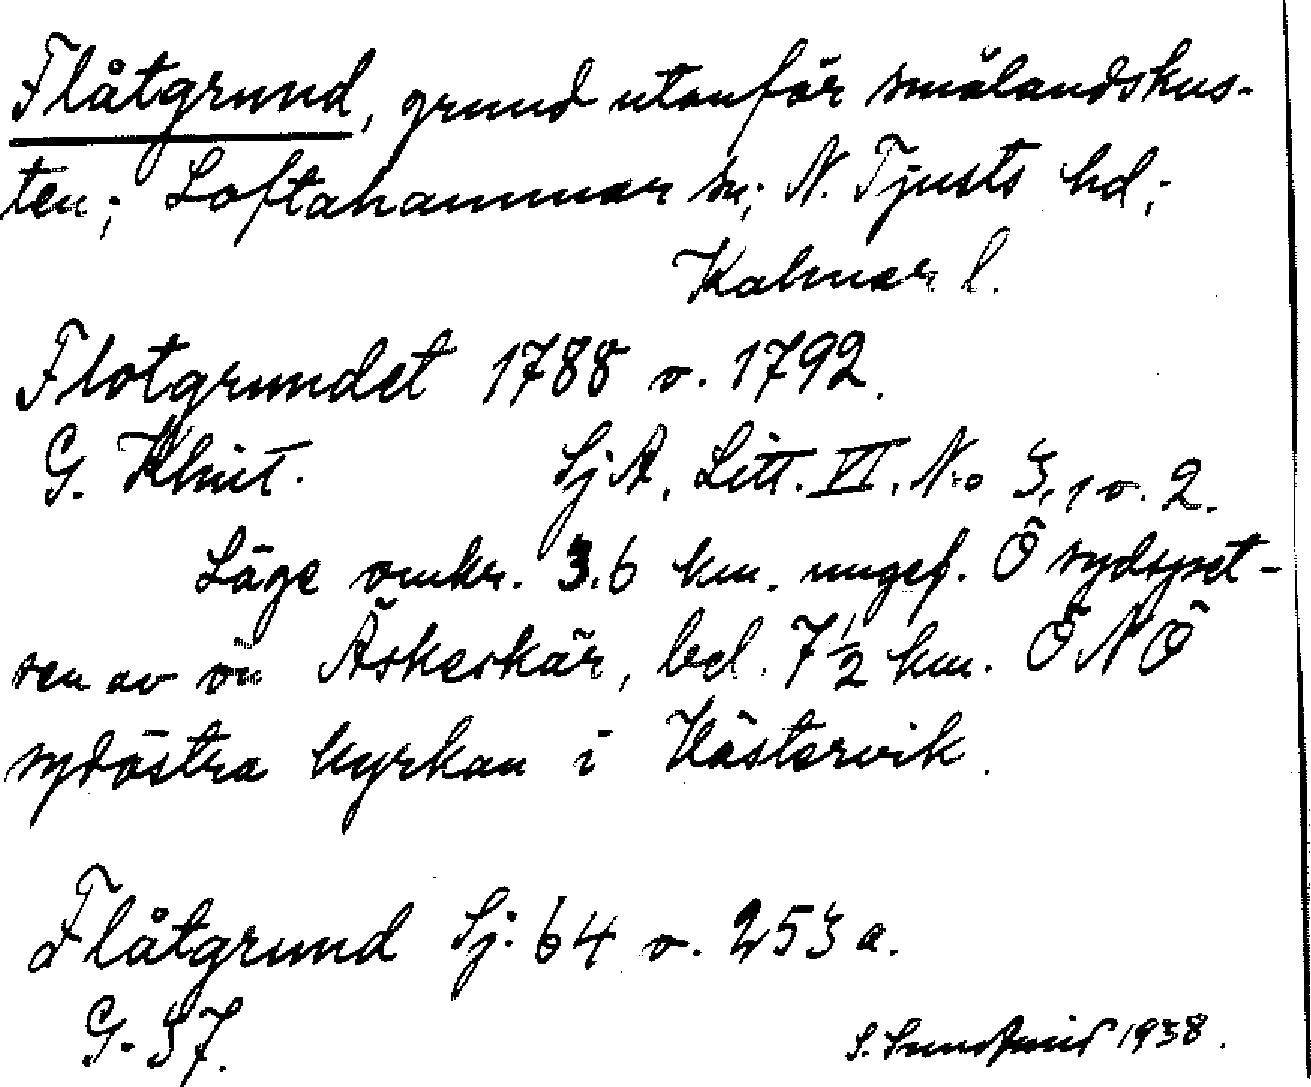 Flåtgrund, grund utanför smålandskus-
ten; Loftahammar sn; N. Tjusts hd;
Kalmar l.
Flotgrundet 1788 o. 1792.
G. Klint. Sj A, Litt. VI, No 3, 1 o. 2.
Läge omkr. 3.6 km. ungef. Ö sydspet-
sen av ön Äskeskär, bel. 7 1/2 km. ÖNÖ
sydöstra kyrkan i Västervik.
Flåtgrund Sj. 64 o. 253 a.
G. 57.
S. 1938.